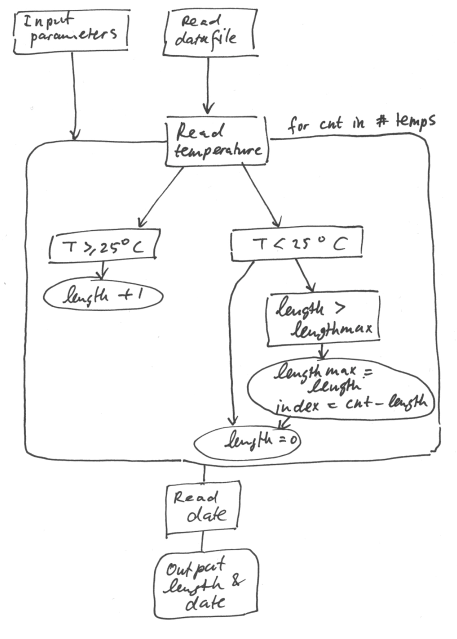 Input
parameters
Read
datafile
for cnt in # temps
Read
temperature
T ≥ 25°C
T < 25°C
length + 1
length >
lengthmax
lengthmax =
length
index = cnt - length
length = 0
Read
date
Output
length &
date